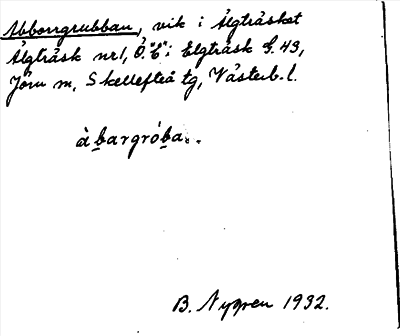 Abborrgrubban, vik i Älgträsket
Älgträsk nr 1, Ö."E"; Elgträsk S. 43,
Jörn sn, Skellefteå tg, Västerb. l.
àbargróba..
B. Nygren 1932.